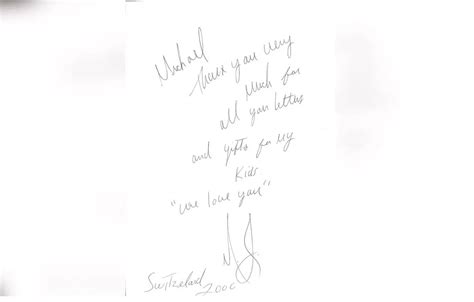 Michael
Thank you very
Much for
all you letters
and gifts for My
Kids
"we love you"
MJ
Switzerland
2000